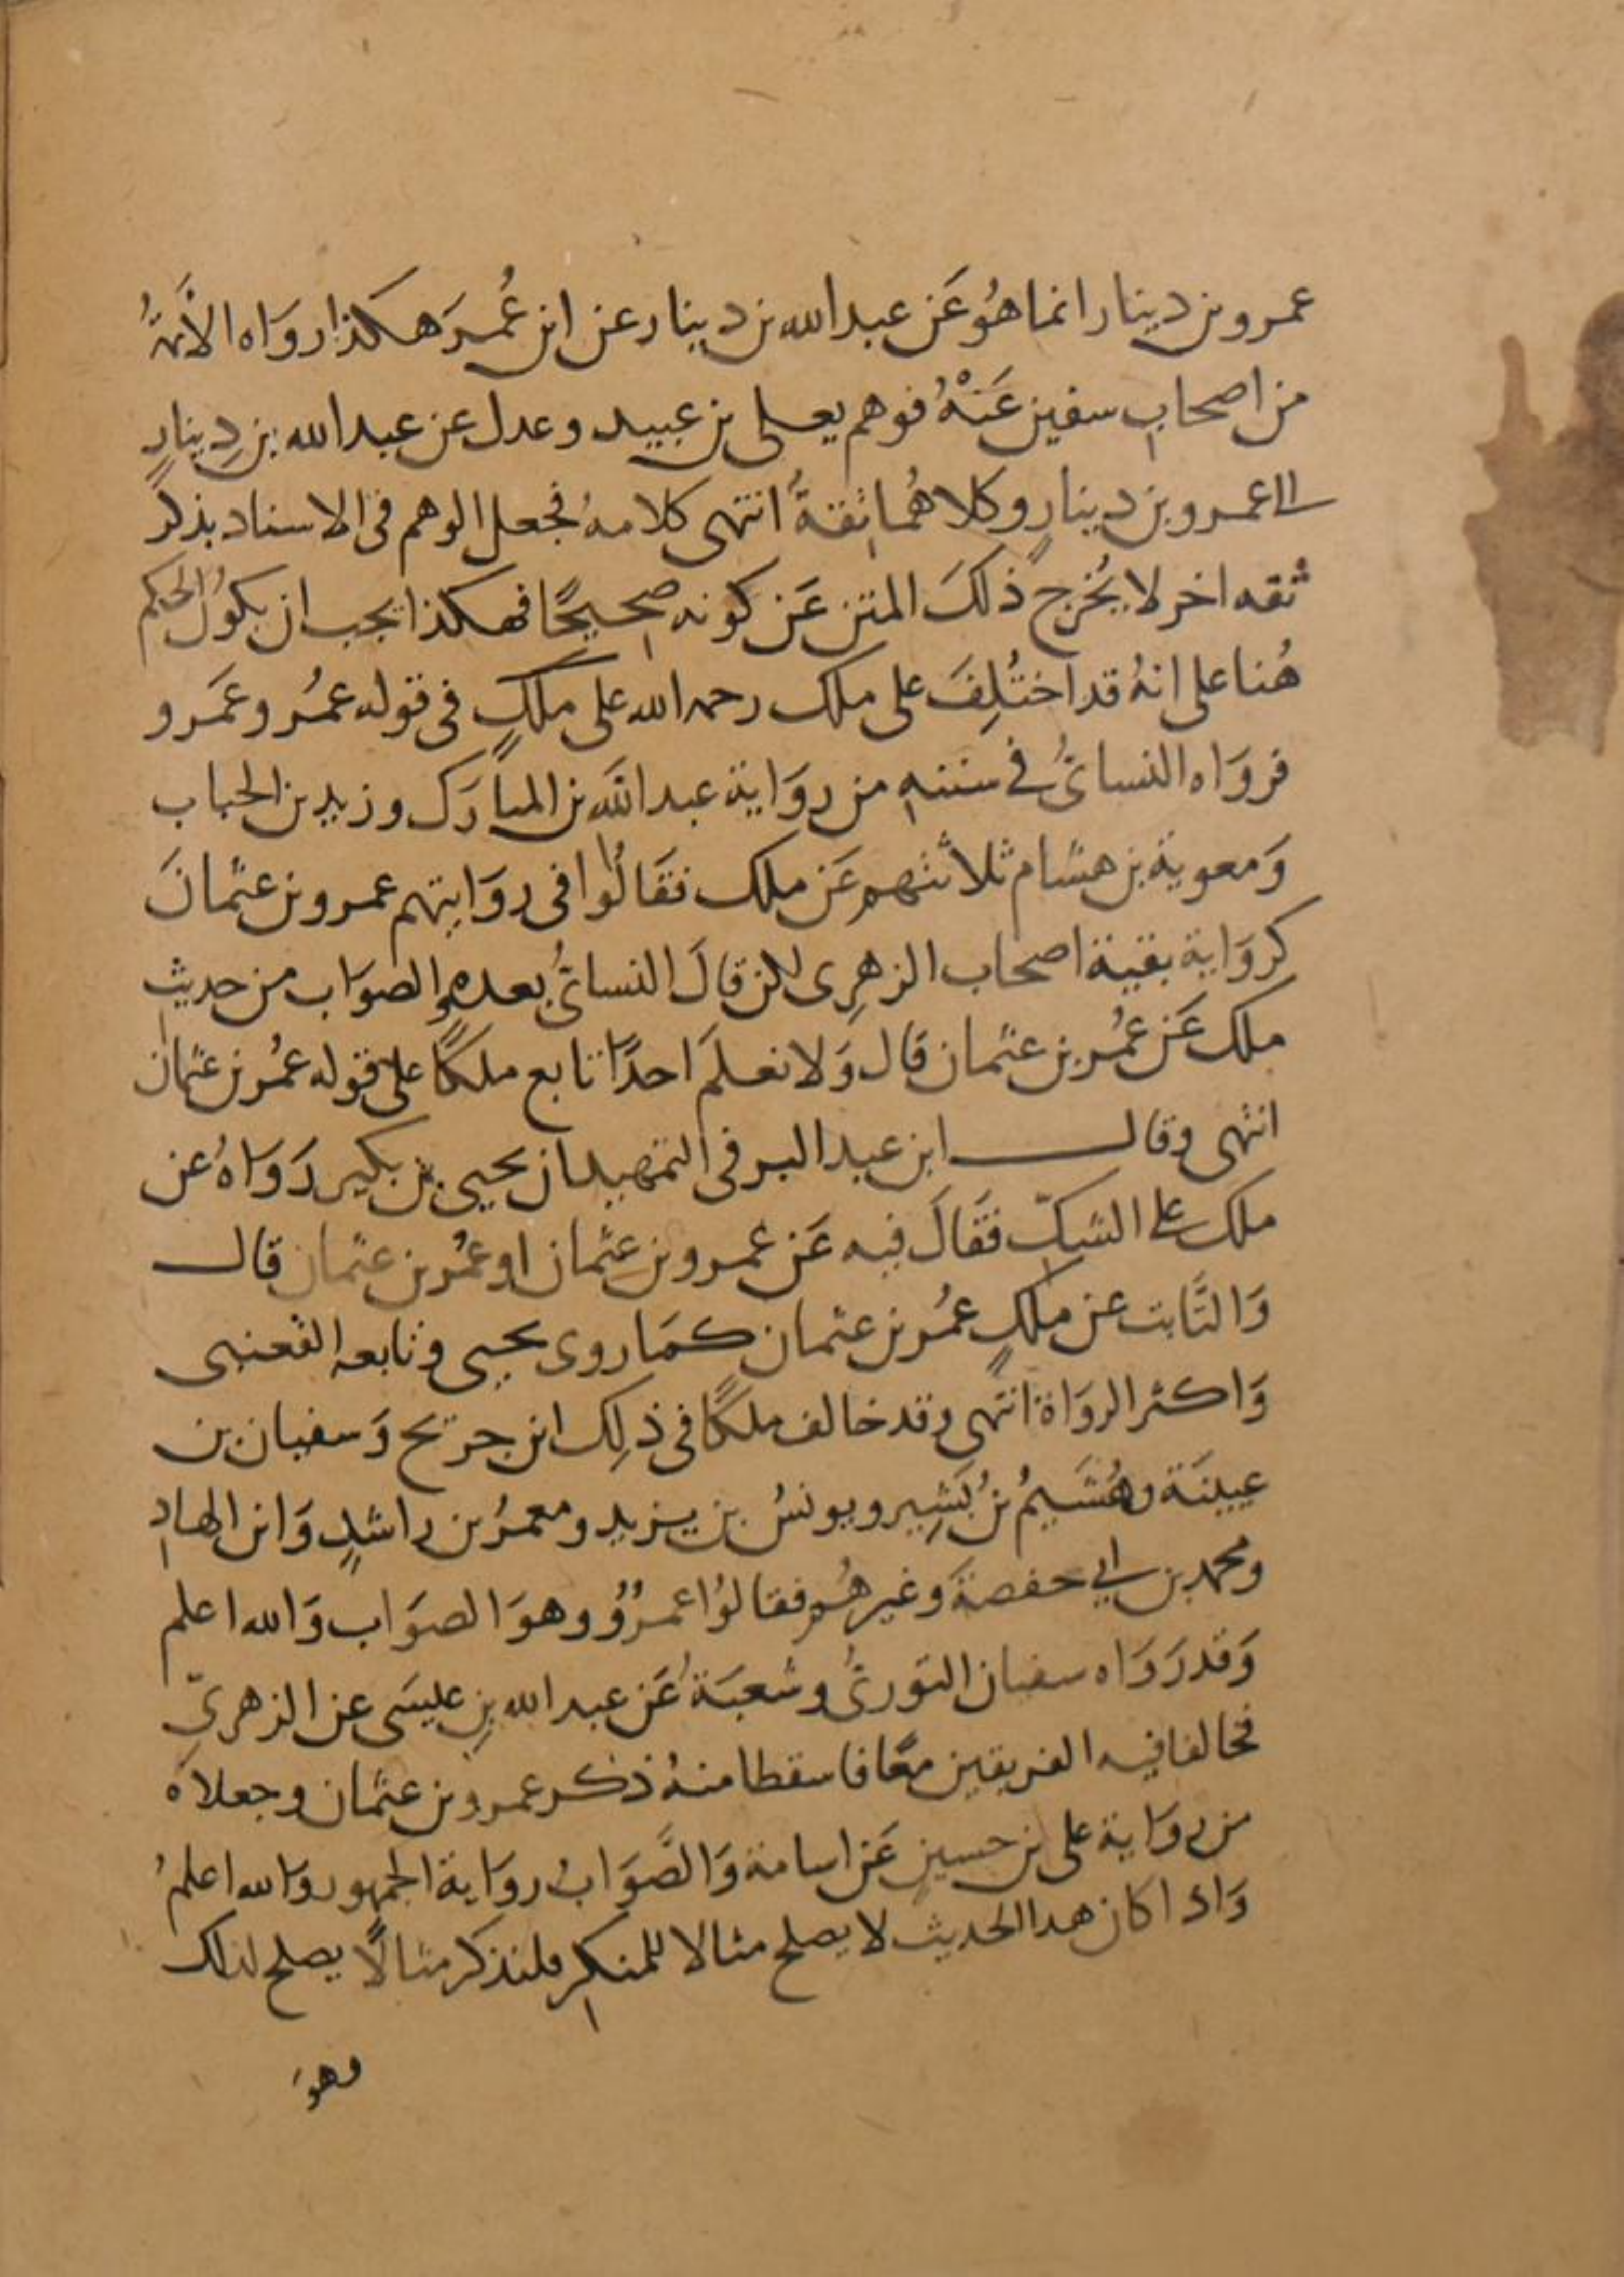 عمرو بن دينار انما هُو عَن عبد الله بن دينار عن ابن عُمرَ هكذا رواه الأئمةُ
من اصحاب سفين عَنْهُ فوهم يعلى بن عبيد وعدل عن عبد الله بن دِينارٍ
الى عمرو بن دينارٍ وكلاهُما ثقةٌ انتهى كلامهُ فجعل الوهم فى الاسناد بذكر
ثقه اخر لا يُخرج ذلكَ المتن عَن كونه صحيحًا فهكذا يجب ان يكونَ الحكم
هُنا على انهُ قد اختُلِفَ على ملك رحمه الله على ملكٍ فى قوله عمُر وعَمرو
فروَاه النسائىُّ فى سننهِ من روَاية عبد اللَّه بن المبارَك وزيد بن الحباب
وَمعوية بن هشام ثلاثتهم عَن ملك فقَالُوا فى روَايتهم عمرو بن عثمانَ
كروَاية بقية اصحاب الزهرِى لكن قالَ النسائىُّ بعده والصوَاب من حديث
ملك عَن عمُر بن عثمان قال وَلا نعلمَ احدًا تابع ملكًا على قوله عمُر بن عثمان
انتهى وقال ابن عبد البر فى التمهيد ان يحيى بن بكير رَوَاهُ عن
ملك على الشكّ فقَالَ فيه عَن عمرو بن عثمان او عمُر بن عثمان قال
وَالثَّابت عن ملكٍ عمُر بن عثمان كمَا روى يحيى وتابعه القعنبى
وَاكثر الروَاة انتهى وقد خالف ملكًا فى ذلِك ابن جريج وَسفيان بن
عيينَة وهُشَيمُ بنُ بَشِير ويونسُ بن يزيد ومعمرُ بن راشدٍ وَابن الهادِ
ومحمد بن ابى حفصةَ وغيرهُم فقالوُا عمرٌو وهوَ الصوَاب وَالله اعلم
وَقد رَوَاه سفيان الثورىُّ وشعبَةُ عَن عبد الله بنِ عليسَى عن الزهرىّ
فخالفا فيه الفريقين معًا فاسقطا منهُ ذكر عمرو بن عثمان وجعلاهَ
من روَاية على بن حسينٍ عَن اسامة وَالصَّوَابُ روَاية الجمهور وَالله اعلمُ
وَاذا كان هدا الحديث لا يصلح مثالا للمنكرِ فلنذكر مثالًا يصلح لذلك
وهوَ